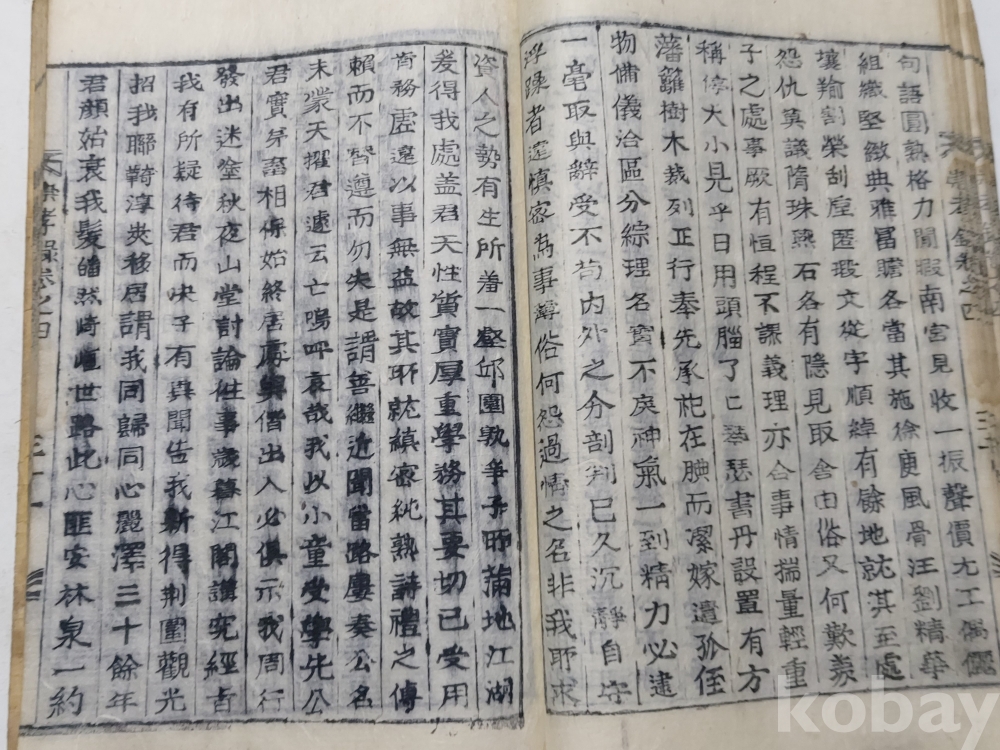 句語圓熟格力閒暇南宮見收一振聲價尤工偶儷
組織堅緻典雅冨贍各當其施徐庾風骨汪劉精華
壤揄割榮刮垕匿瑕文從字順綽有餘地就淇至處
怨仇莫議隋珠燕石各有隱見取舍由俗又何歉羡
子之處事厥有恒程不諜義理亦合事情揣量輕重
稱停大小見乎日用頭腦了亡琴瑟書丹設置有方
藩籬樹木裁列正行奉先承祀在腆而潔嫁遣孤侄
物備儀洽區分綜理名實不戾神氣一到精力必逮
一毫取與辭受不苟内外之分剖判已久沉靜自守
浮躁者還慎密為事薄俗何怨過情之名非我耶求
資人之勢有生所羞一壑邱園孰爭子耶蒲地江湖
爰得我處盖君天性質實厚重學務其要切己受用
肯務虛遠以事無益故其耶就縝密純熟詩禮之傳
賴而不習遵而勿失是謂善繼近聞當路屢奏公名
末蒙天擢君遽云亡嗚呼哀哉我以小童受學先公
君實芽畜相保始終居處與偕出入必俱示我周行
發出迷塗秋夜山堂討論性事歲暮江閣講究經旨
我有所疑待君而决子有異聞告我新得荆圍觀光
招我聯鞯淳夾移居謂我同歸同心麗澤三十餘年
君顔始衰我髮皤然崎嶇世路此心匪安林泉一約
卷之四